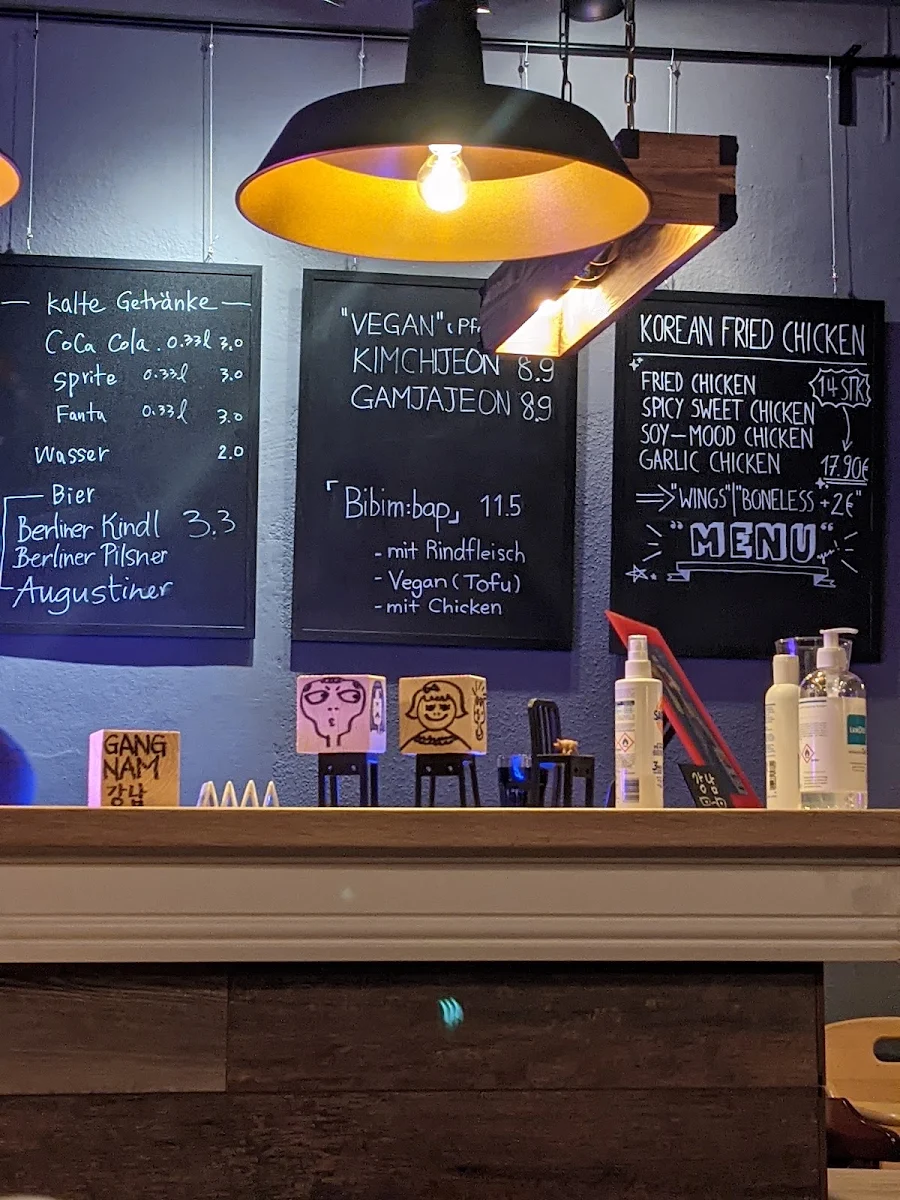 kalte Getränke
CoCa Cola . 0.33l 3.0
Sprite 0.33l 3.0
Fanta 0.33l 3.0
Wasser 2.0
Bier
Berliner Kindl 3.3
Berliner Pilsner
Augustiner
"VEGAN"
KIMCHIJEON 8.9
GAMJAJEON 8.9
「Bibim:bap」 11.5
- mit Rindfleisch
- Vegan (Tofu)
- mit Chicken
KOREAN FRIED CHICKEN
FRIED CHICKEN 14 STK
SPICY SWEET CHICKEN
SOY-MOOD CHICKEN
GARLIC CHICKEN 17.90€
⇒ "WINGS"|"BONELESS +2€"
"MENU"
GANG
NAM
강남
강남